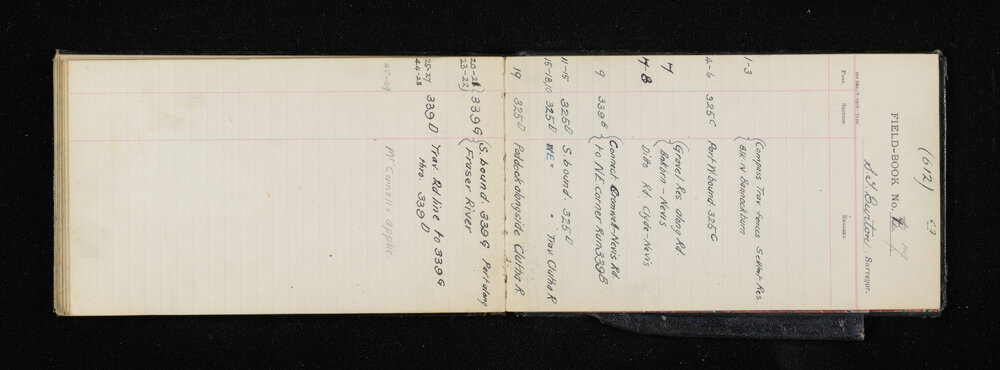 (612)
FIELD-BOOK No. 7
Burton, Surveyor.
PAGE. SECTION. REMARKS.
1-3 {Compass Trav. fences Settmt. Res.
Blk IV Bannockburn
4-6 325C Part W bound. 325C
7 {Gravel Res. along Rd.
- Nevis
7-8 Ditto Rd. Clyde-Nevis
9 339B {Connect Cromwell-Nevis Rd.
to NE corner Run 339B
11-15 325D S. bound. 325D
15-18, 325D NE " " Trav. Clutha R
19 325D Paddock alongside Clutha R.
20-21 {339G {S. bound. 339G Part along
23-22} Fraser River
25-27 339D Trav. Rd line to 339G
44-28 thro. 339D
McConnell's applic.